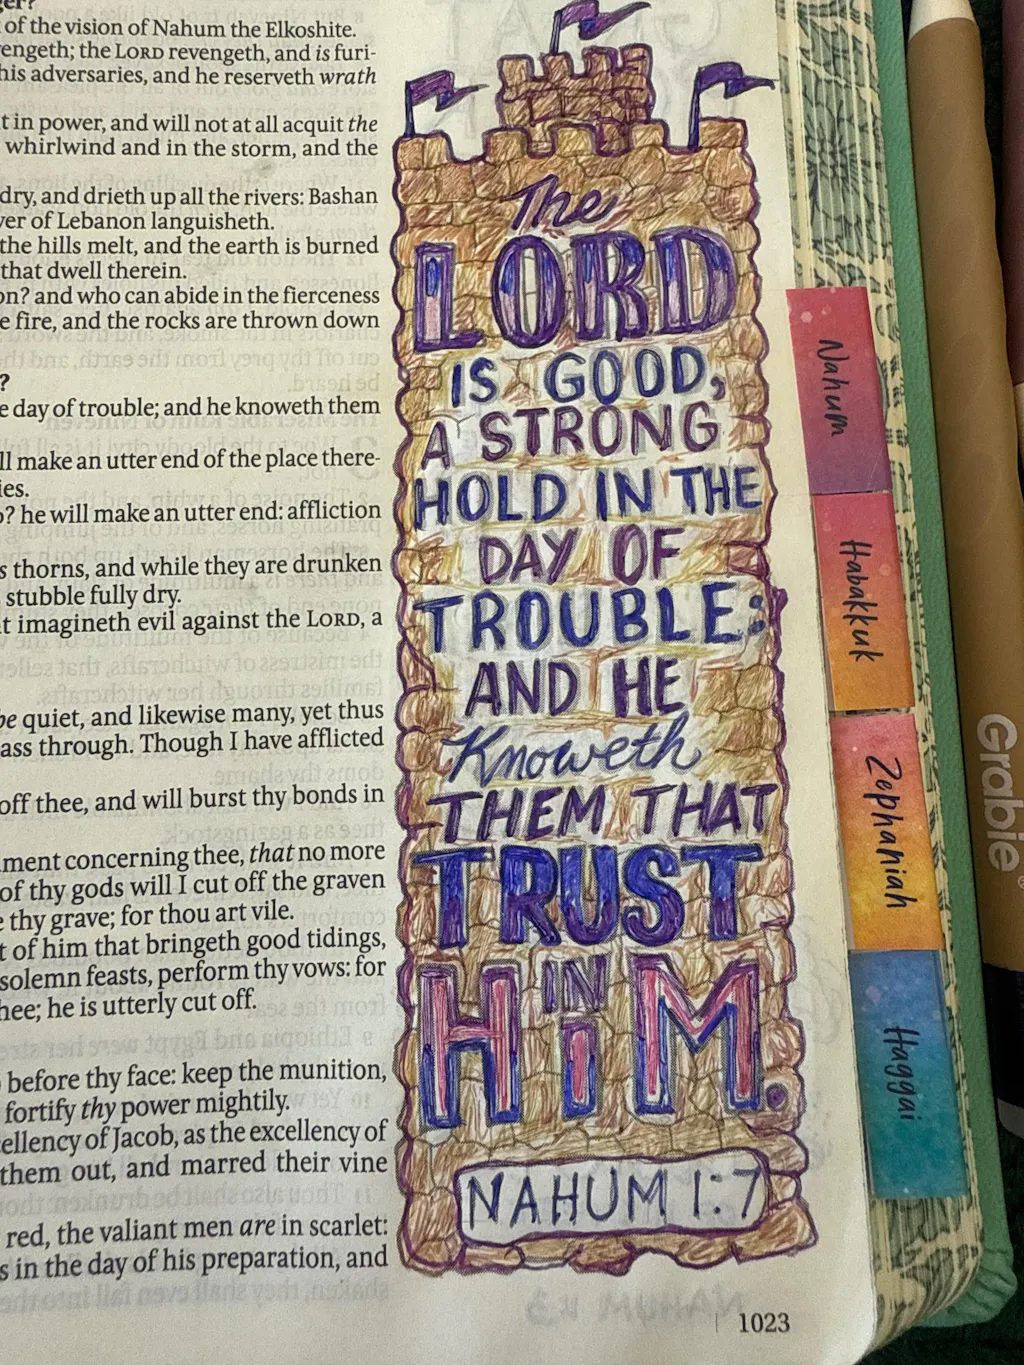 of the vision of Nahum the Elkoshite.
the LORD revengeth, and is furi-
his adversaries, and he reserveth wrath
in power, and will not at all acquit the
whirlwind and in the storm, and the
dry, and drieth up all the rivers: Bashan
of Lebanon languisheth.
the hills melt, and the earth is burned
that dwell therein.
and who can abide in the fierceness
fire, and the rocks are thrown down
?
day of trouble; and he knoweth them
make an utter end of the place there-
he will make an utter end: affliction
thorns, and while they are drunken
stubble fully dry.
imagineth evil against the LORD, a
be quiet, and likewise many, yet thus
through. Though I have afflicted
off thee, and will burst thy bonds in
concerning thee, that no more
of thy gods will I cut off the graven
thy grave; for thou art vile.
of him that bringeth good tidings,
solemn feasts, perform thy vows: for
he is utterly cut off.
before thy face: keep the munition,
fortify thy power mightily.
of Jacob, as the excellency of
them out, and marred their vine
red, the valiant men are in scarlet:
in the day of his preparation, and
The
LORD
IS GOOD,
A STRONG
HOLD IN THE
DAY OF
TROUBLE:
AND HE
Knoweth
THEM THAT
TRUST
IN
HiM.
NAHUM 1:7
1023
Nahum
Habakkuk
Zephaniah
Haggai
Grabie